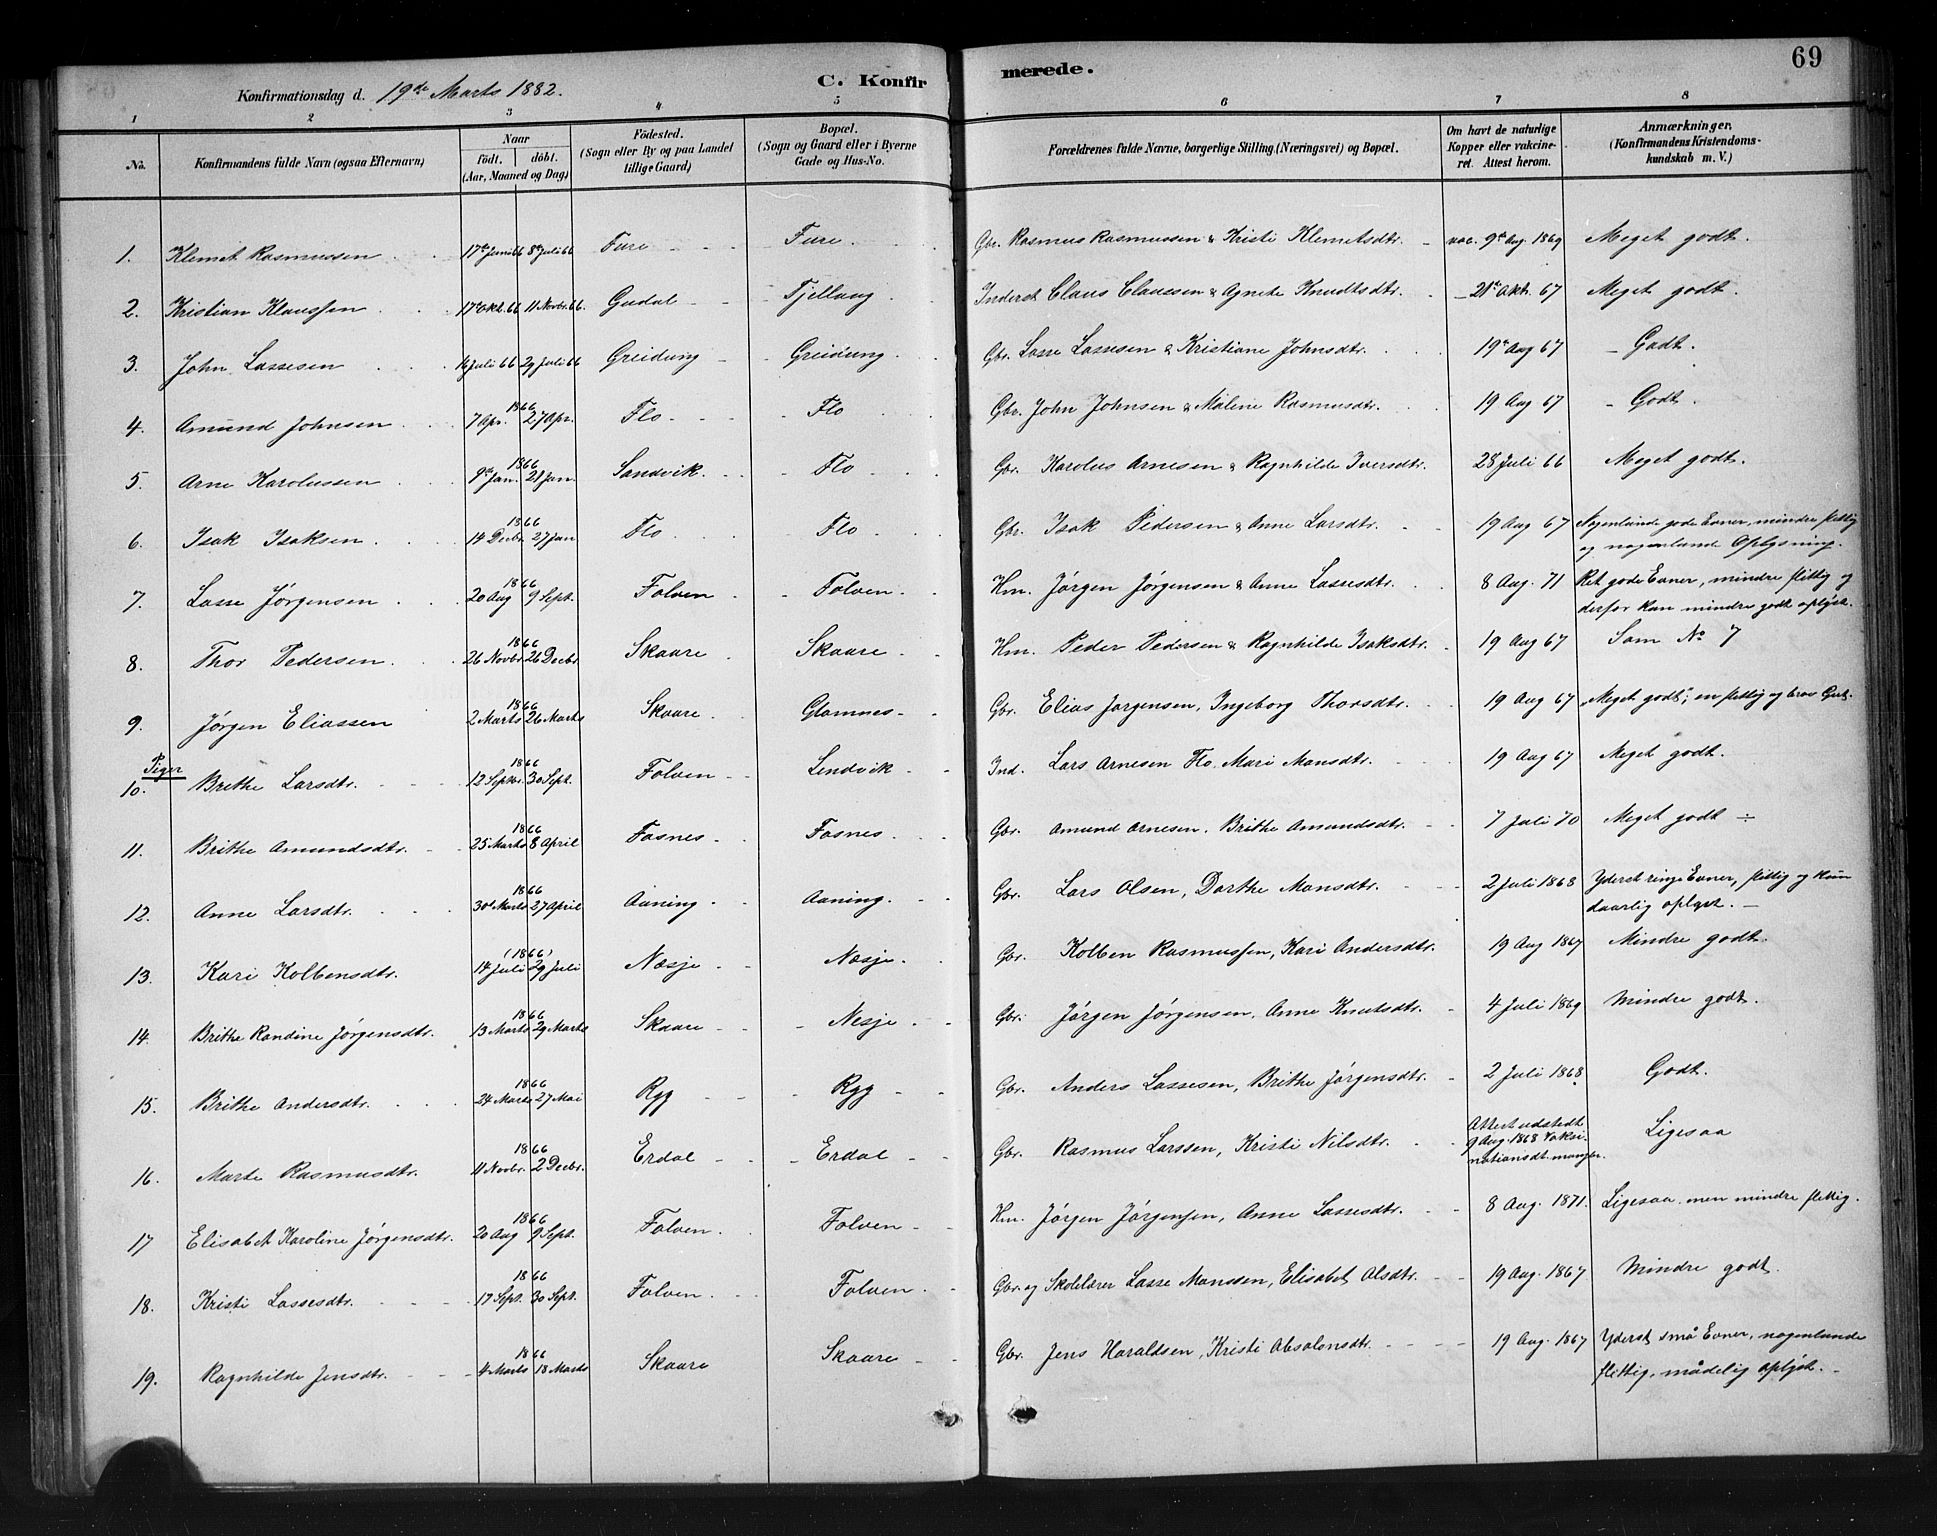 69
C. Konfirmerede.
Konfirmationsdag d. 19de Marts 1882.
1 2 3 4 5 6 7 8
No. Konfirmandens fulde Navn (ogsaa Efternavn) Naar födt. döbt. (Aar, Maaned og Dag) Födested. (Sogn eller By og paa Landet tillige Gaard) Bopæl. (Sogn og Gaard eller i Byerne Gade og Hus-No. Forældrenes fulde Navne, borgerlige Stilling, (Næringsvei) og Bopæl. Om havt de naturlige Kopper eller vakcineret. Attest herom. Anmærkninger. (Konfirmandens Kristendomskundskab m. V.)
1. Klemet Rasmussen 17de Juni 66 8de Juli 66 Fure Fure Gbr. Rasmus Rasmussen & Kristi Klemetsdtr. vac. 9de Aug. 1869 Meget godt.
2. Kristian Klaussen 17de Okt. 66 11 Novbr. 66. Gudal Tjellaug Inderst Claus Clausen & Agnete Knudtsdtr. 21de Okt. 67 Meget godt.
3. John Lassesen 16 Juli 66 29 Juli 66 Greidung Greidung Gbr. Lasse Lassesen & Kristiane Johnsdtr. 19de Aug 67 Godt.
4. Amund Johnsen 1866 7 Apr. 27 Apr. Flo Flo Gbr. John Johnsen & Malene Rasmusdtr. 19 Aug 67 Godt.
5. Arne Karolussen 1866 9de Jan. 21 Jan. Sandvik. Flo Gbr. Karolus Arnesen & Ragnhilde Iversdtr. 28 Juli 66 Meget godt.
6. Isak Isaksen 1866 14 Decbr. 27 Jan Flo Flo Gbr. Isak Pedersen & Anne Larsdtr. 19 Aug 67 Nogenlunde gode Evner, mindre flittig og nogenlunde Oplysning.
7. Lasse Jørgensen 1866 20 Aug 9 Sept. Folven Folven Hm. Jørgen Jørgensen & Anne Lassesdtr. 8 Aug. 71 Ret gode Evner, mindre flittig og derfor kun mindre godt oplyst.
8. Thor Pedersen 1866 26 Novbr. 26 Decbr. Skaare Skaare Hm. Peder Pedersen & Ragnhilde Isaksdtr. 19 Aug 67 Som No 7
9. Jørgen Eliassen 1866 2 Marts 26 Marts Skaare Glomnes Gbr. Elias Jørgensen, Ingeborg Thorsdtr. 19 Aug 67 "Meget godt"; en flittig og brav Gut.
Piger
10. Brithe Larsdtr. 1866 12 Septbr. 30 Sept. Folven Lendvik Ind. Lars Arnesen Flo. Mari Monsdtr. 19 Aug 67 Meget godt.
11. Brithe Amundsdtr. 1866 25 Marts 8 April Fosnes Fosnes Gbr. Amund Arnesen. Brithe Amundsdtr. 7 Juli 70 Meget godt ÷
12. Anne Larsdtr. 1866 30 Marts 27 April Aaning Aaning. Gbr. Lars Olsen, Dorthe Monsdtr. 2 Juli 1868 Yderst ringe Evner, flittig og kun daarlig oplyst. —
13. Kari Kolbensdtr. (1866) 14 Juli 29 Juli Næsje Næsje Gbr. Kolben Rasmussen, Kari Andersdtr. 19 Aug 1867 Mindre godt.
14. Brithe Randine Jørgensdtr. 1866 13 Marts 29 Marts Skaare Nesje Gbr. Jørgen Jørgensen, Anne Knutsdtr. 4 Juli 1869 Mindre godt.
15. Brithe Andersdtr. 1866 24 Marts 27 Mai Ryg Ryg Gbr. Anders Lassesen, Brithe Jørgensdtr. 2 Juli 1868. Godt.
16. Marte Rasmusdtr. 1866 11 Novbr. 2 Decbr. Erdal Erdal Gbr. Rasmus Larssen, Kristi Nilsdtr. Attest udstedt 9 Aug. 1868 Vaksinationsdt. mangler. Ligesaa
17 Elisabet Karoline Jørgensdtr. 1866 20 Aug 9 Sept. Folven Folven Hm. Jørgen Jørgensen, Anne Lassesdtr. 8 Aug. 1871. Ligesaa. men mindre flittig.
18. Kristi Lassesdtr. 1866 17 Sept. 30 Sept. Folven. Folven Gbr. og Skolelærer Lasse Monssen, Elisabet Olsdtr. 19 Aug. 1867 Mindre godt.
19. Ragnhilde Jensdtr. 1866 4 Marts 18 Marts Skaare Skaare Gbr. Jens Haraldsen, Kristi Absalonsdtr. 19 Aug. 1867 Yderst små Evner, nogenlunde flittig, mådelig oplyst.